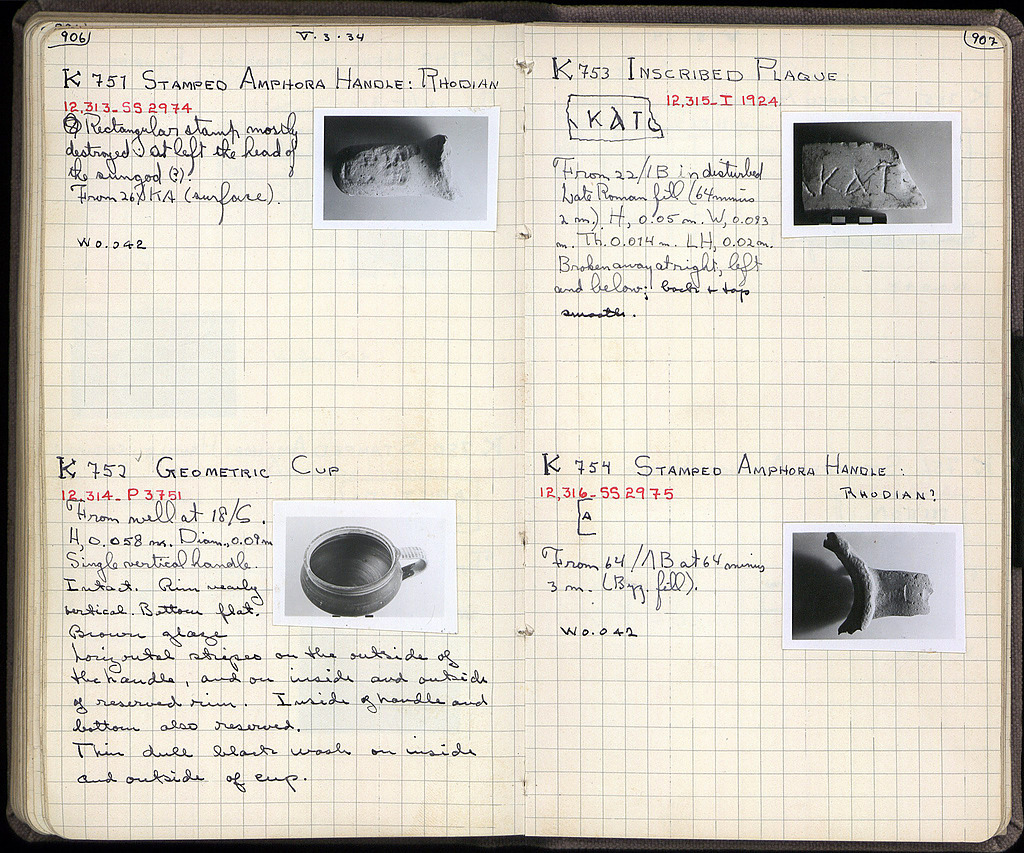 906
V.3.34
K 751 STAMPED AMPHORA HANDLE: RHODIAN
12,313_SS 2974
Rectangular stamp mostly
destroyed; at left the head of
the sungod (?).
From 26/KA (surface).
W 0.042
K 752 GEOMETRIC CUP
12,314_P 3751
From well at 18/S.
H, 0.058 m. Diam., 0.09 m
Single vertical handle.
Intact. Rim nearly
vertical. Bottom flat.
Brown glaze
horizontal stripes on the outside of
the handle, and on inside and outside
of reserved rim. Inside of handle and
bottom also reserved.
Thin dull black wash on inside
and outside of cup.
907
K 753 INSCRIBED PLAQUE
12,315_I 1924
ΚΑΤ
From 22/ΙΒ in disturbed
Late Roman fill (64 minus
2 m.) H, 0.05 m. W, 0.093
m. Th. 0.014 m. LH, 0.02 m.
Broken away at right, left
and below; back + top
smooth.
ΚΑΤ
K 754 STAMPED AMPHORA HANDLE:
RHODIAN?
12,316_SS 2975
A
From 64/ΛΒ at 64 minus
3 m. (Byz. fill).
W 0.042